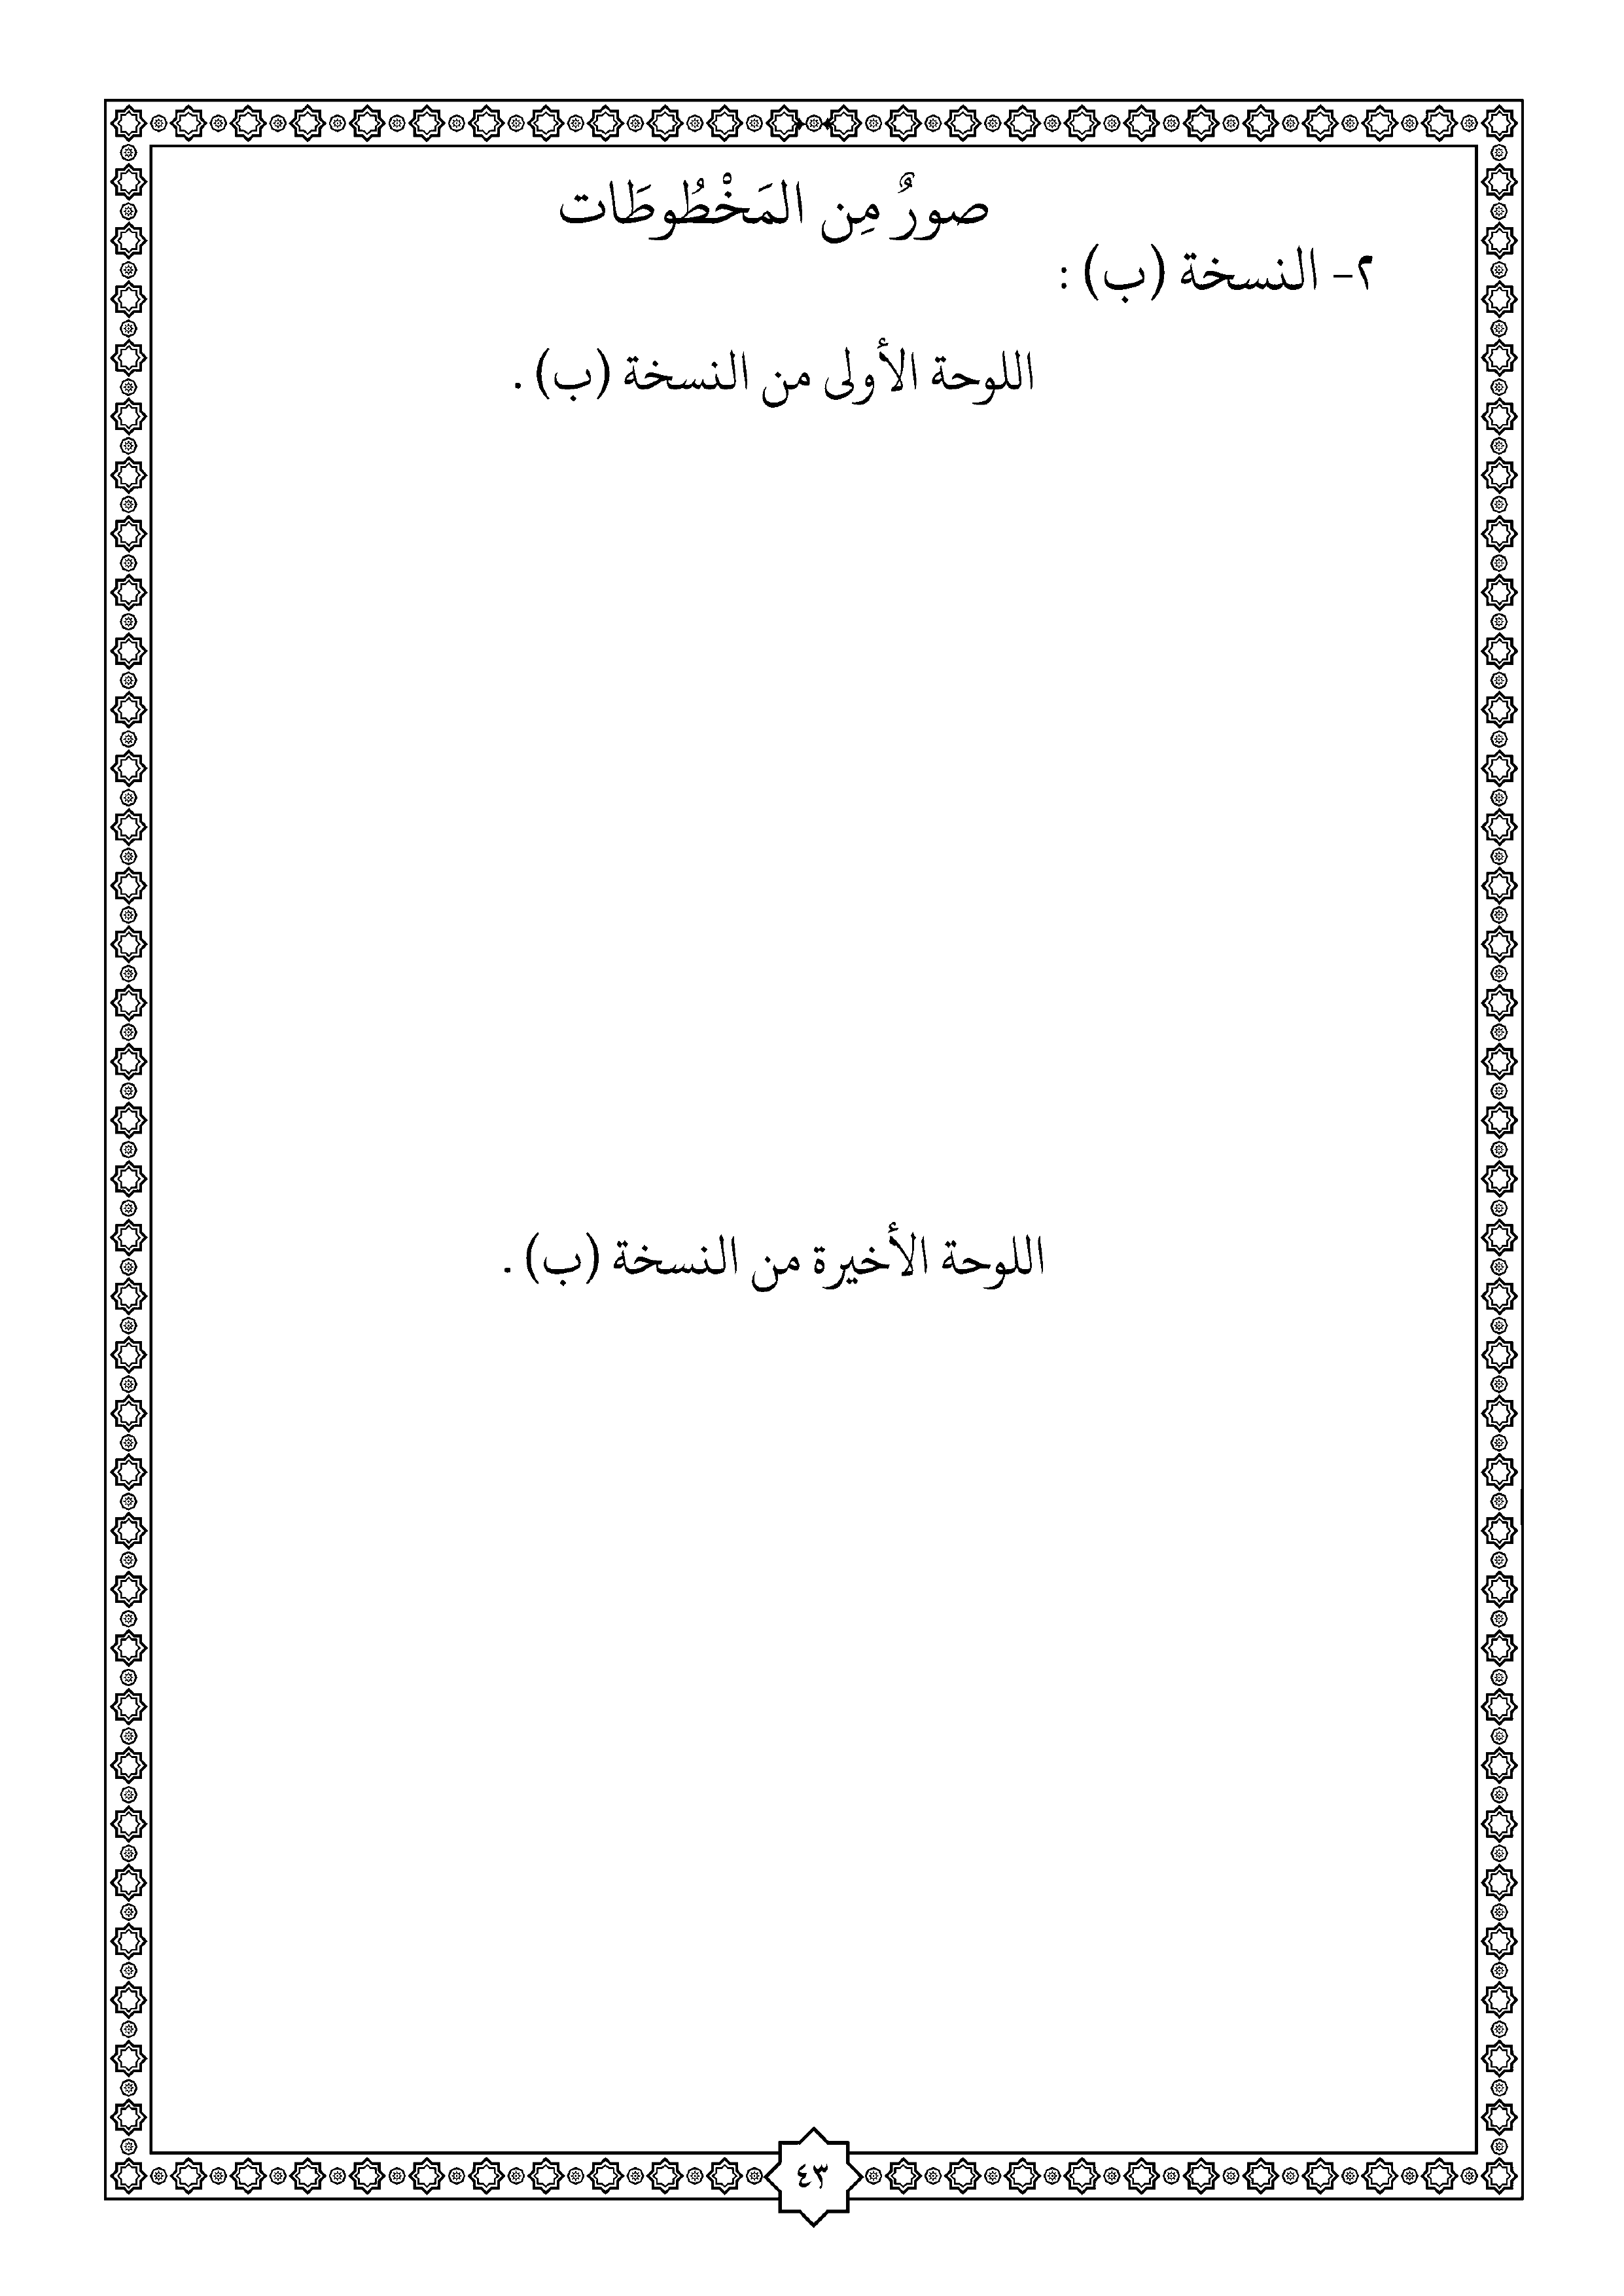 صورٌ مِن المَخْطُوطَات
٢- النسخة (ب) :
اللوحة الأولى من النسخة (ب) .
اللوحة الأخيرة من النسخة (ب) .
٤٣